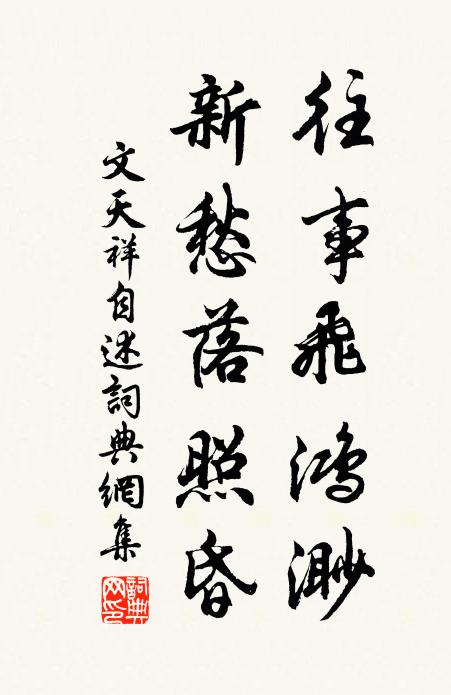 往事飛鴻渺
新愁落照昏
文天祥自述詞典網集
詞典網印